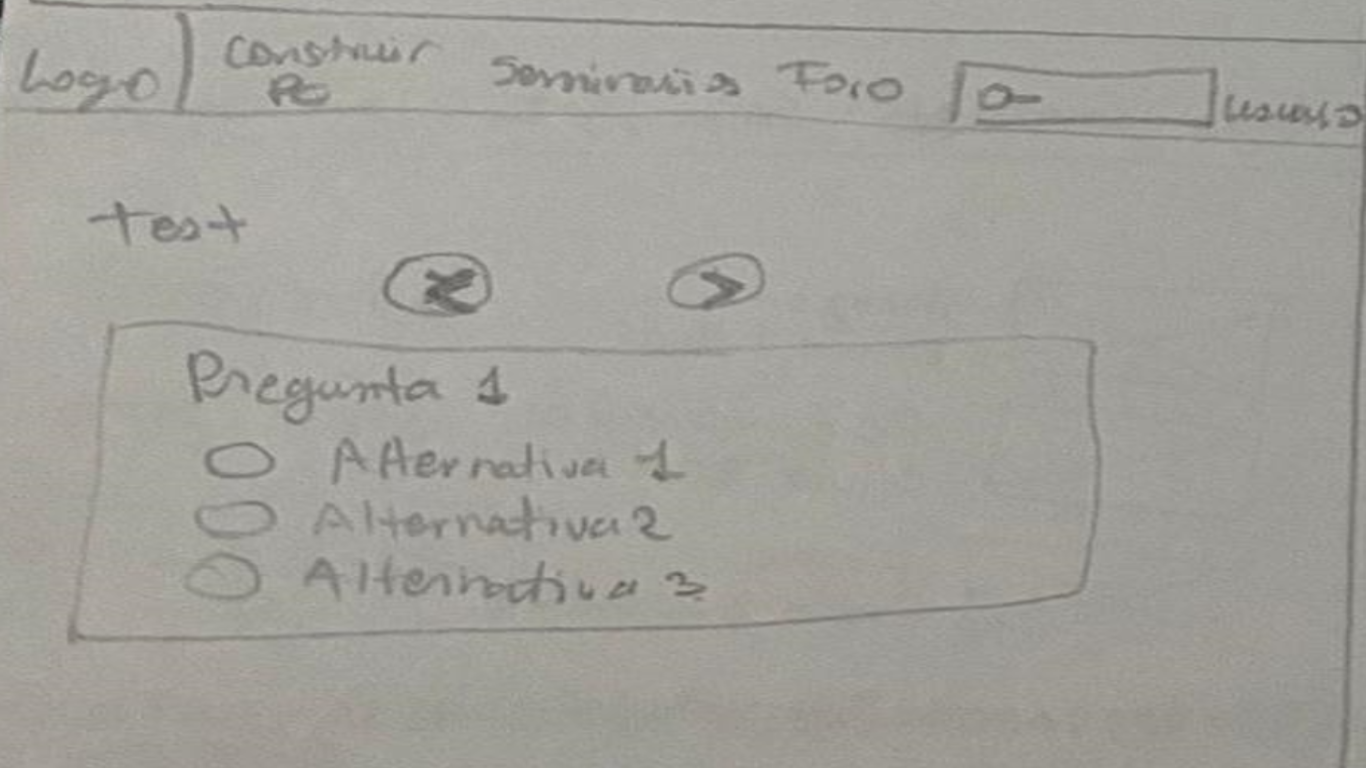 Logo Construir Seminarios Foro Usuario
PC
Test
< >
Pregunta 1
Alternativa 1
Alternativa 2
Alternativa 3